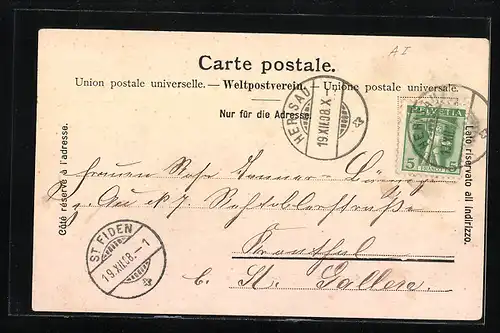 A I
Carte postale.
Union postale universelle. — Weltpostverein. — Unione postale universale.
Nur für die Adresse.
HERISAU
19.XII.08.X
HELVETIA
5 5
FRANCO
Côté réservé à l'adresse.
Lato riservato all indirizzo.
Frauen Rosa
z.
Kronthal
b. St. Gallen.
ST. FIDEN
19.XII.08.-1